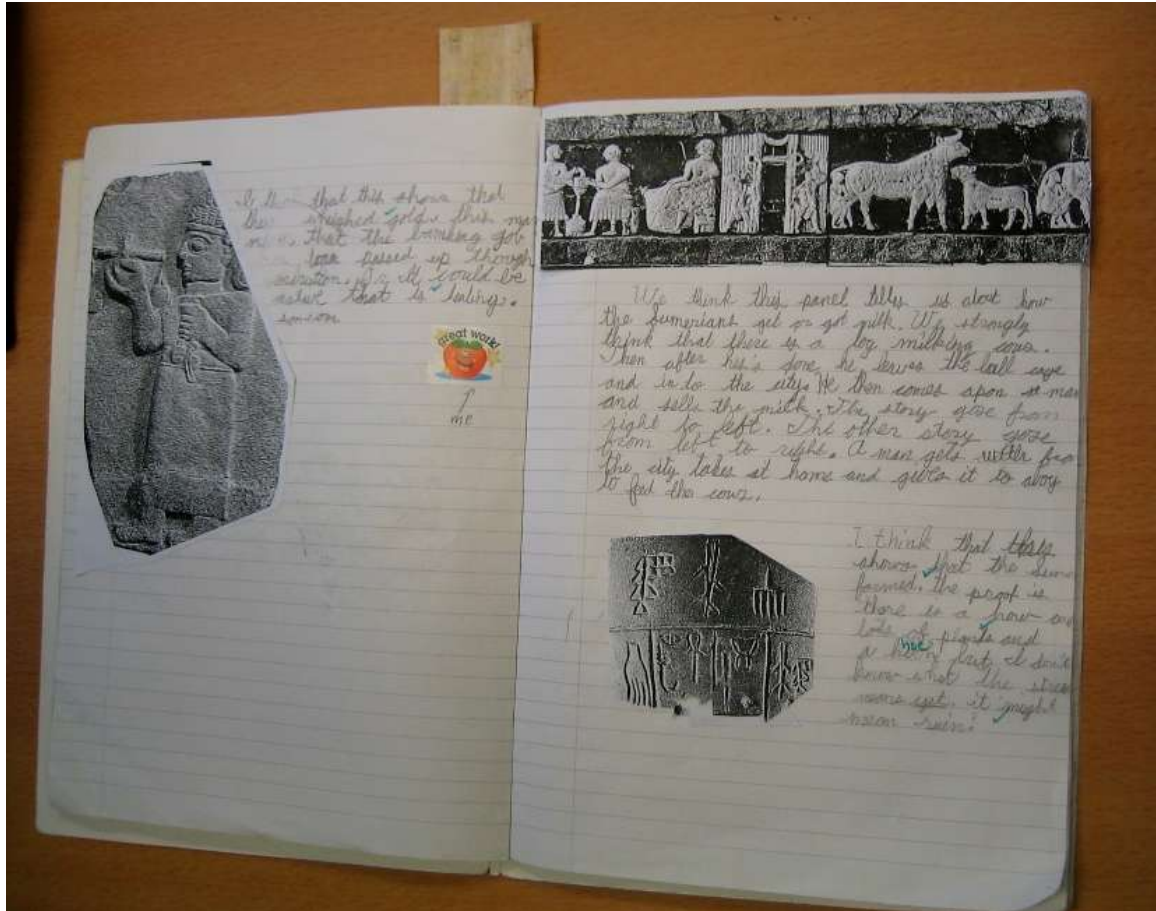 I think that this shows that
they weighed gold. this man
means that the banking job
been passed up though
It could be
that is
great work!
me
We think this panel tilles is about how
the Sumerians get or got milk. We strongly
think that there is a boy milking cows.
Then after he's done, he leaves the
and in to the city. He then comes apon a man
and sells the milk. The story gose from
right to left. The other story gose
from left to right. A man gets water from
the city takes it home and gives it to aboy
to feed the cows.
I think that this
shows that the
farmed. the proof is
there is a and
lots of plants and
a hoe but I don't
know what the
mens yet. it might
mean rain!